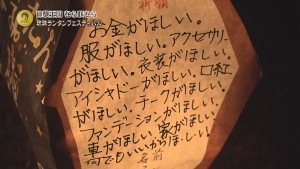 琉球ランタンフェスティバル
祈願
お金がほしい。
服がほしい。アクセサリー
がほしい。衣装がほしい。
アイシャドーがほしい。口紅
がほしい。チークがほしい。
ファンデーションがほしい。
車がほしい。家がほしい。
何でもいいからほしい!
名前